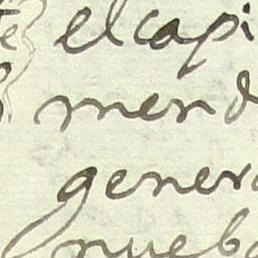 te el capi
mend
genera
nueb